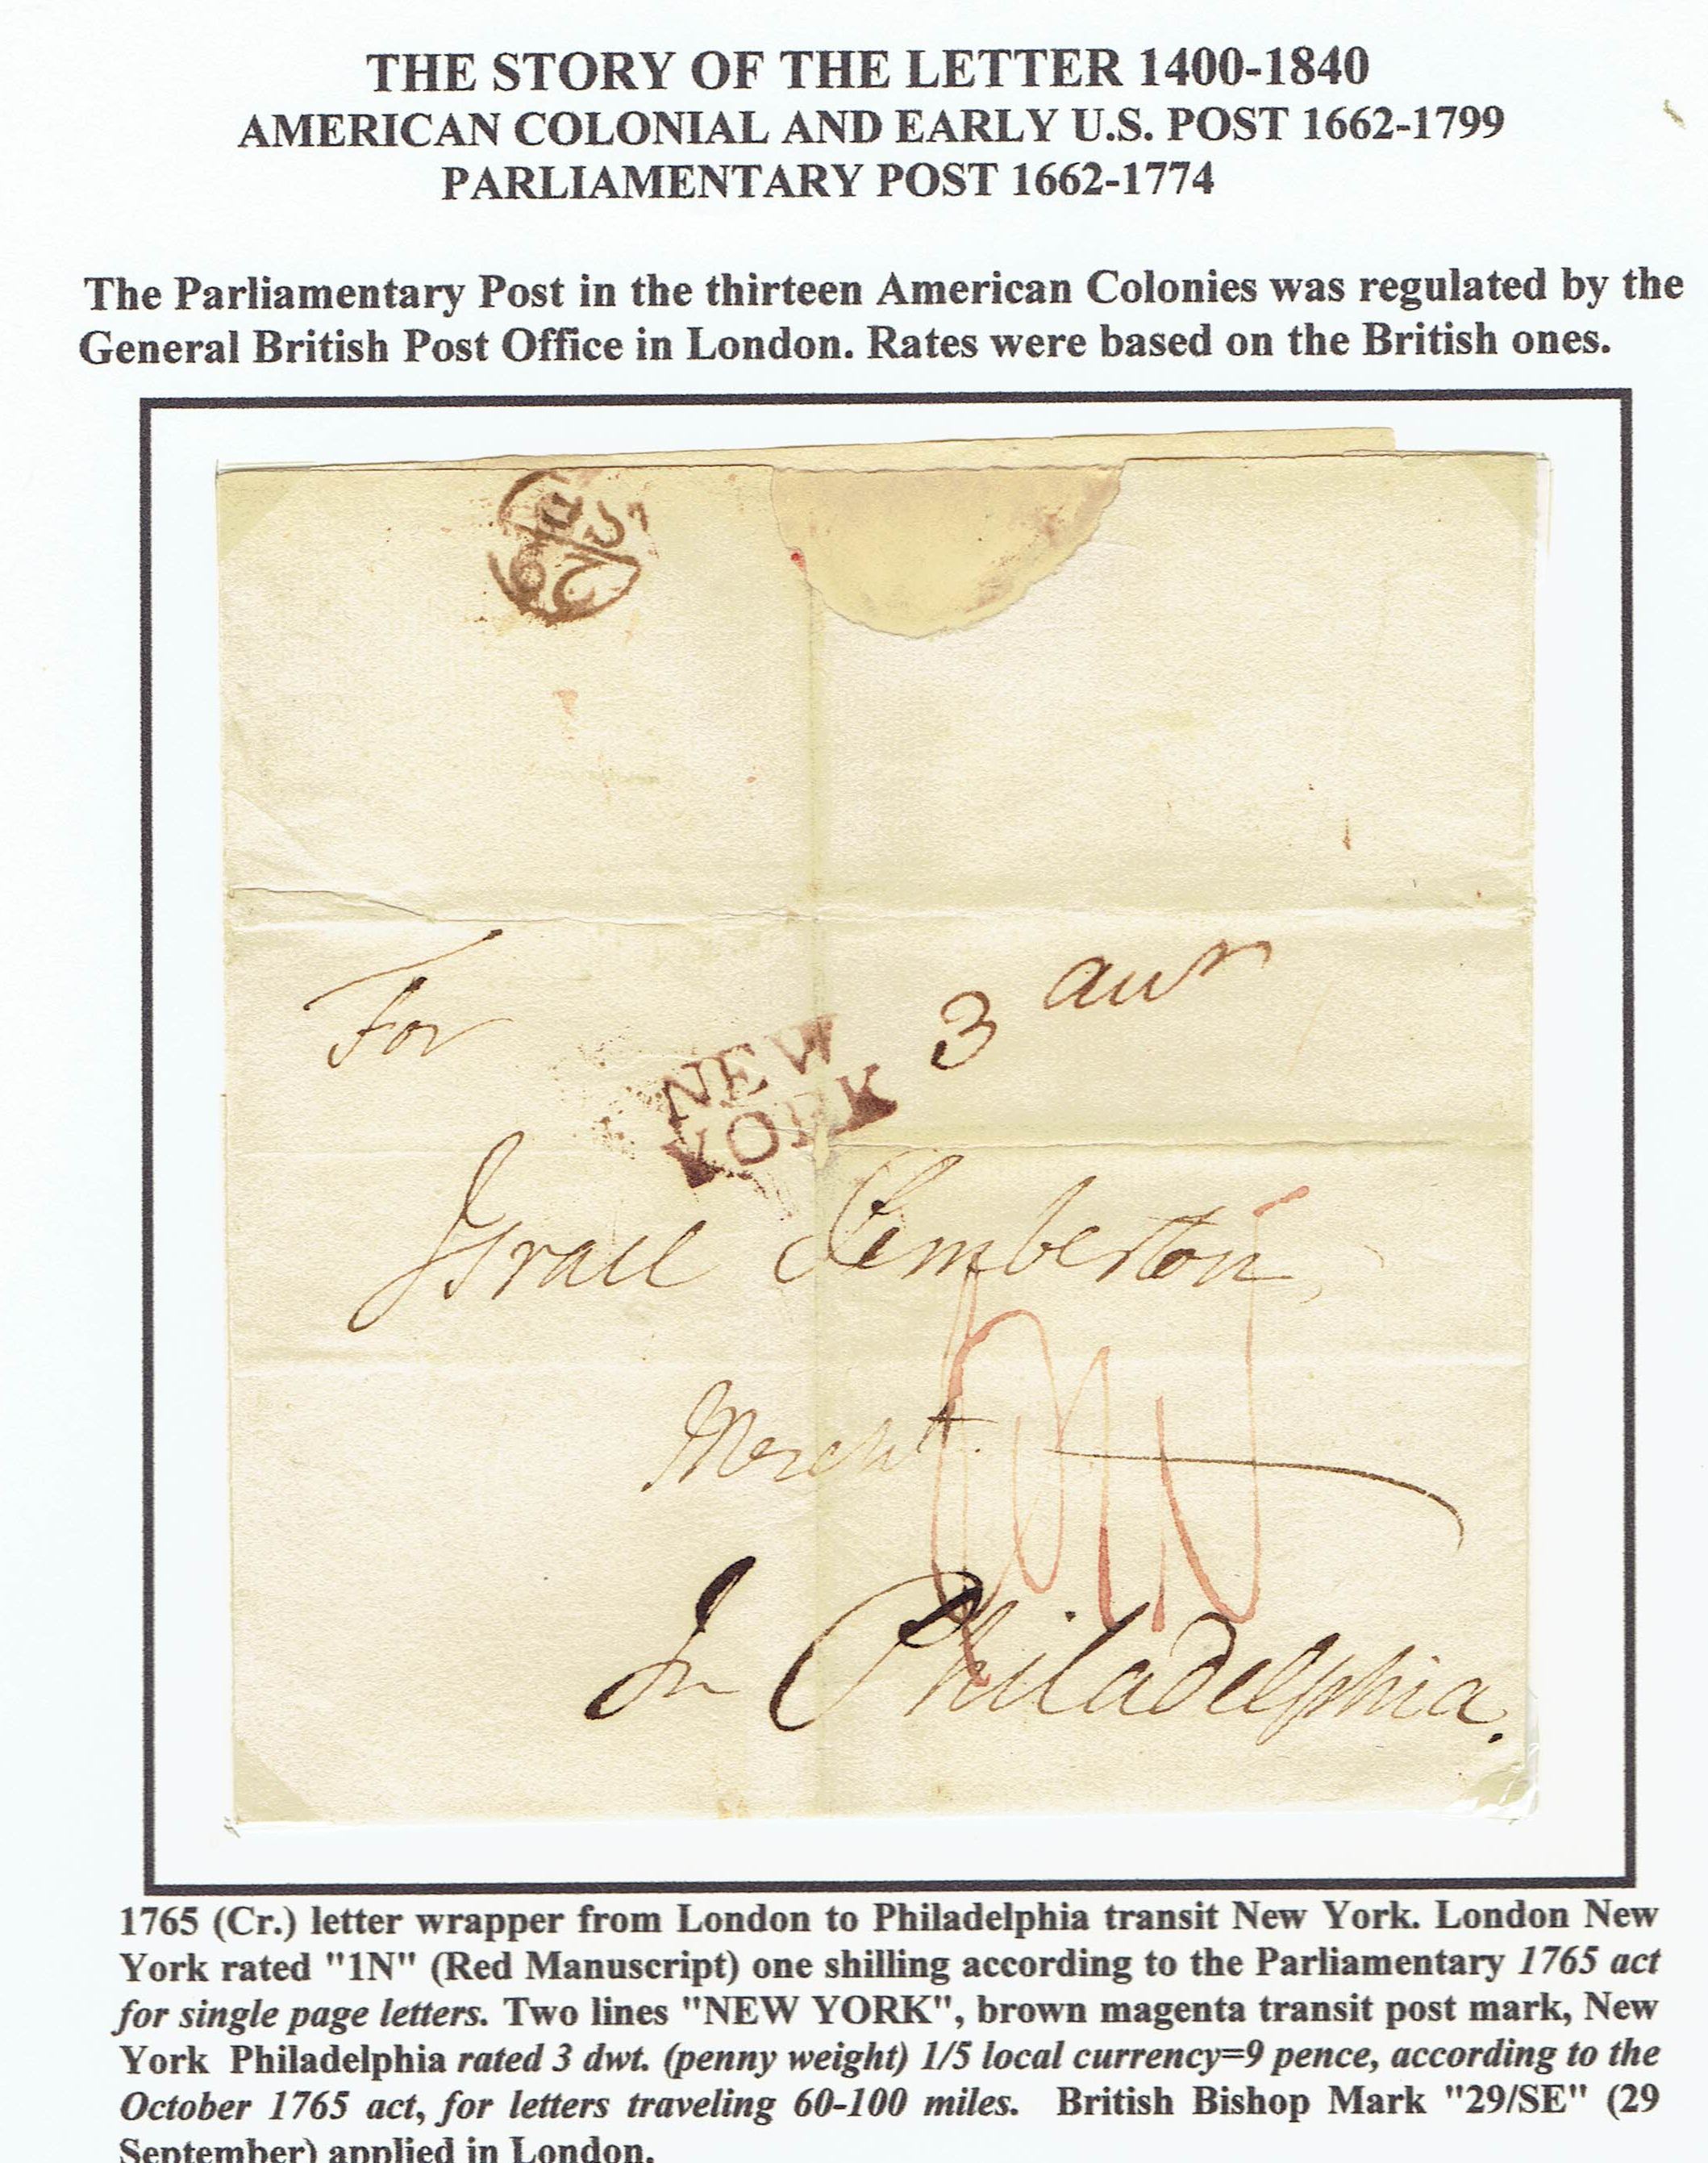 THE STORY OF THE LETTER 1400-1840
AMERICAN COLONIAL AND EARLY U.S. POST 1662-1799
PARLIAMENTARY POST 1662-1774
The Parliamentary Post in the thirteen American Colonies was regulated by the
General British Post Office in London. Rates were based on the British ones.
SE
29
For
3
NEW
YORK
Israel Pemberton
Mercht.
In Philadelphia.
1765 (Cr.) letter wrapper from London to Philadelphia transit New York. London New
York rated "1N" (Red Manuscript) one shilling according to the Parliamentary 1765 act
for single page letters. Two lines "NEW YORK", brown magenta transit post mark, New
York Philadelphia rated 3 dwt. (penny weight) 1/5 local currency=9 pence, according to the
October 1765 act, for letters traveling 60-100 miles. British Bishop Mark "29/SE" (29
September) applied in London.